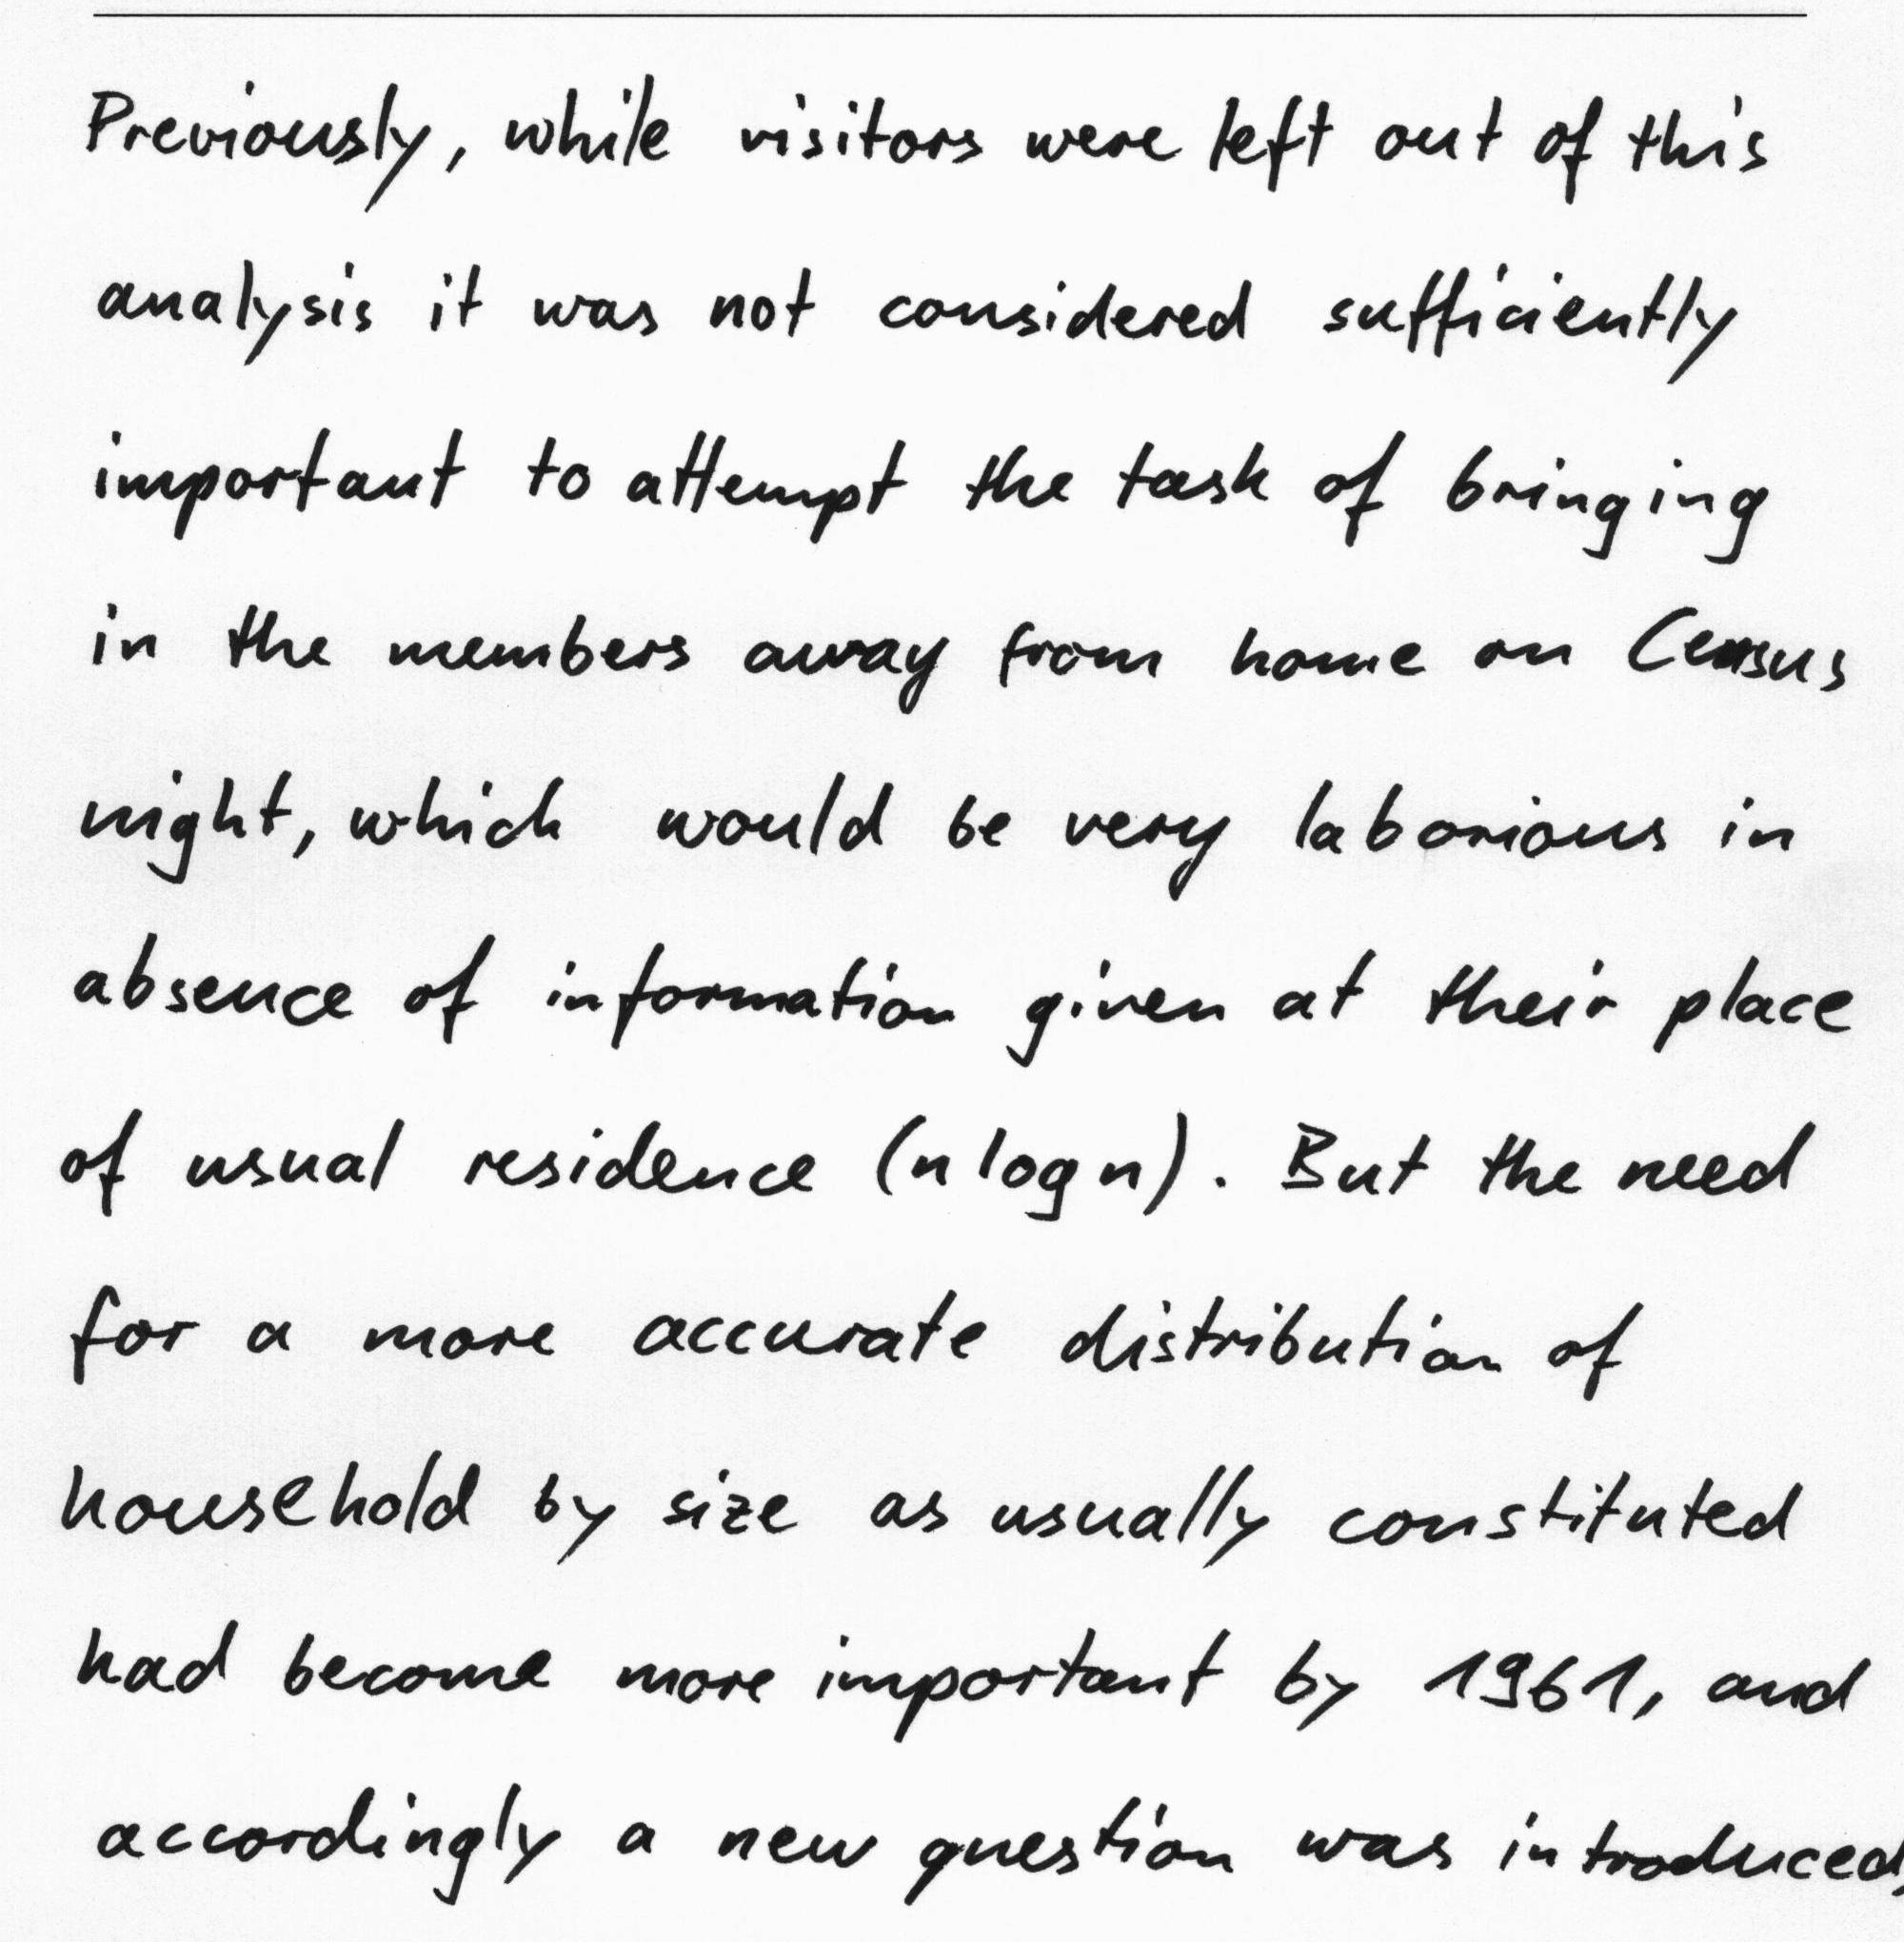 Previously, while visitors were left out of this
analysis it was not considered sufficiently
important to attempt the task of bringing
in the members away from home on Census
night, which would be very laborious in
absence of information given at their place
of usual residence (n log n). But the need
for a more accurate distribution of
household by size as usually constituted
had become more important by 1961, and
accordingly a new question was introduced,